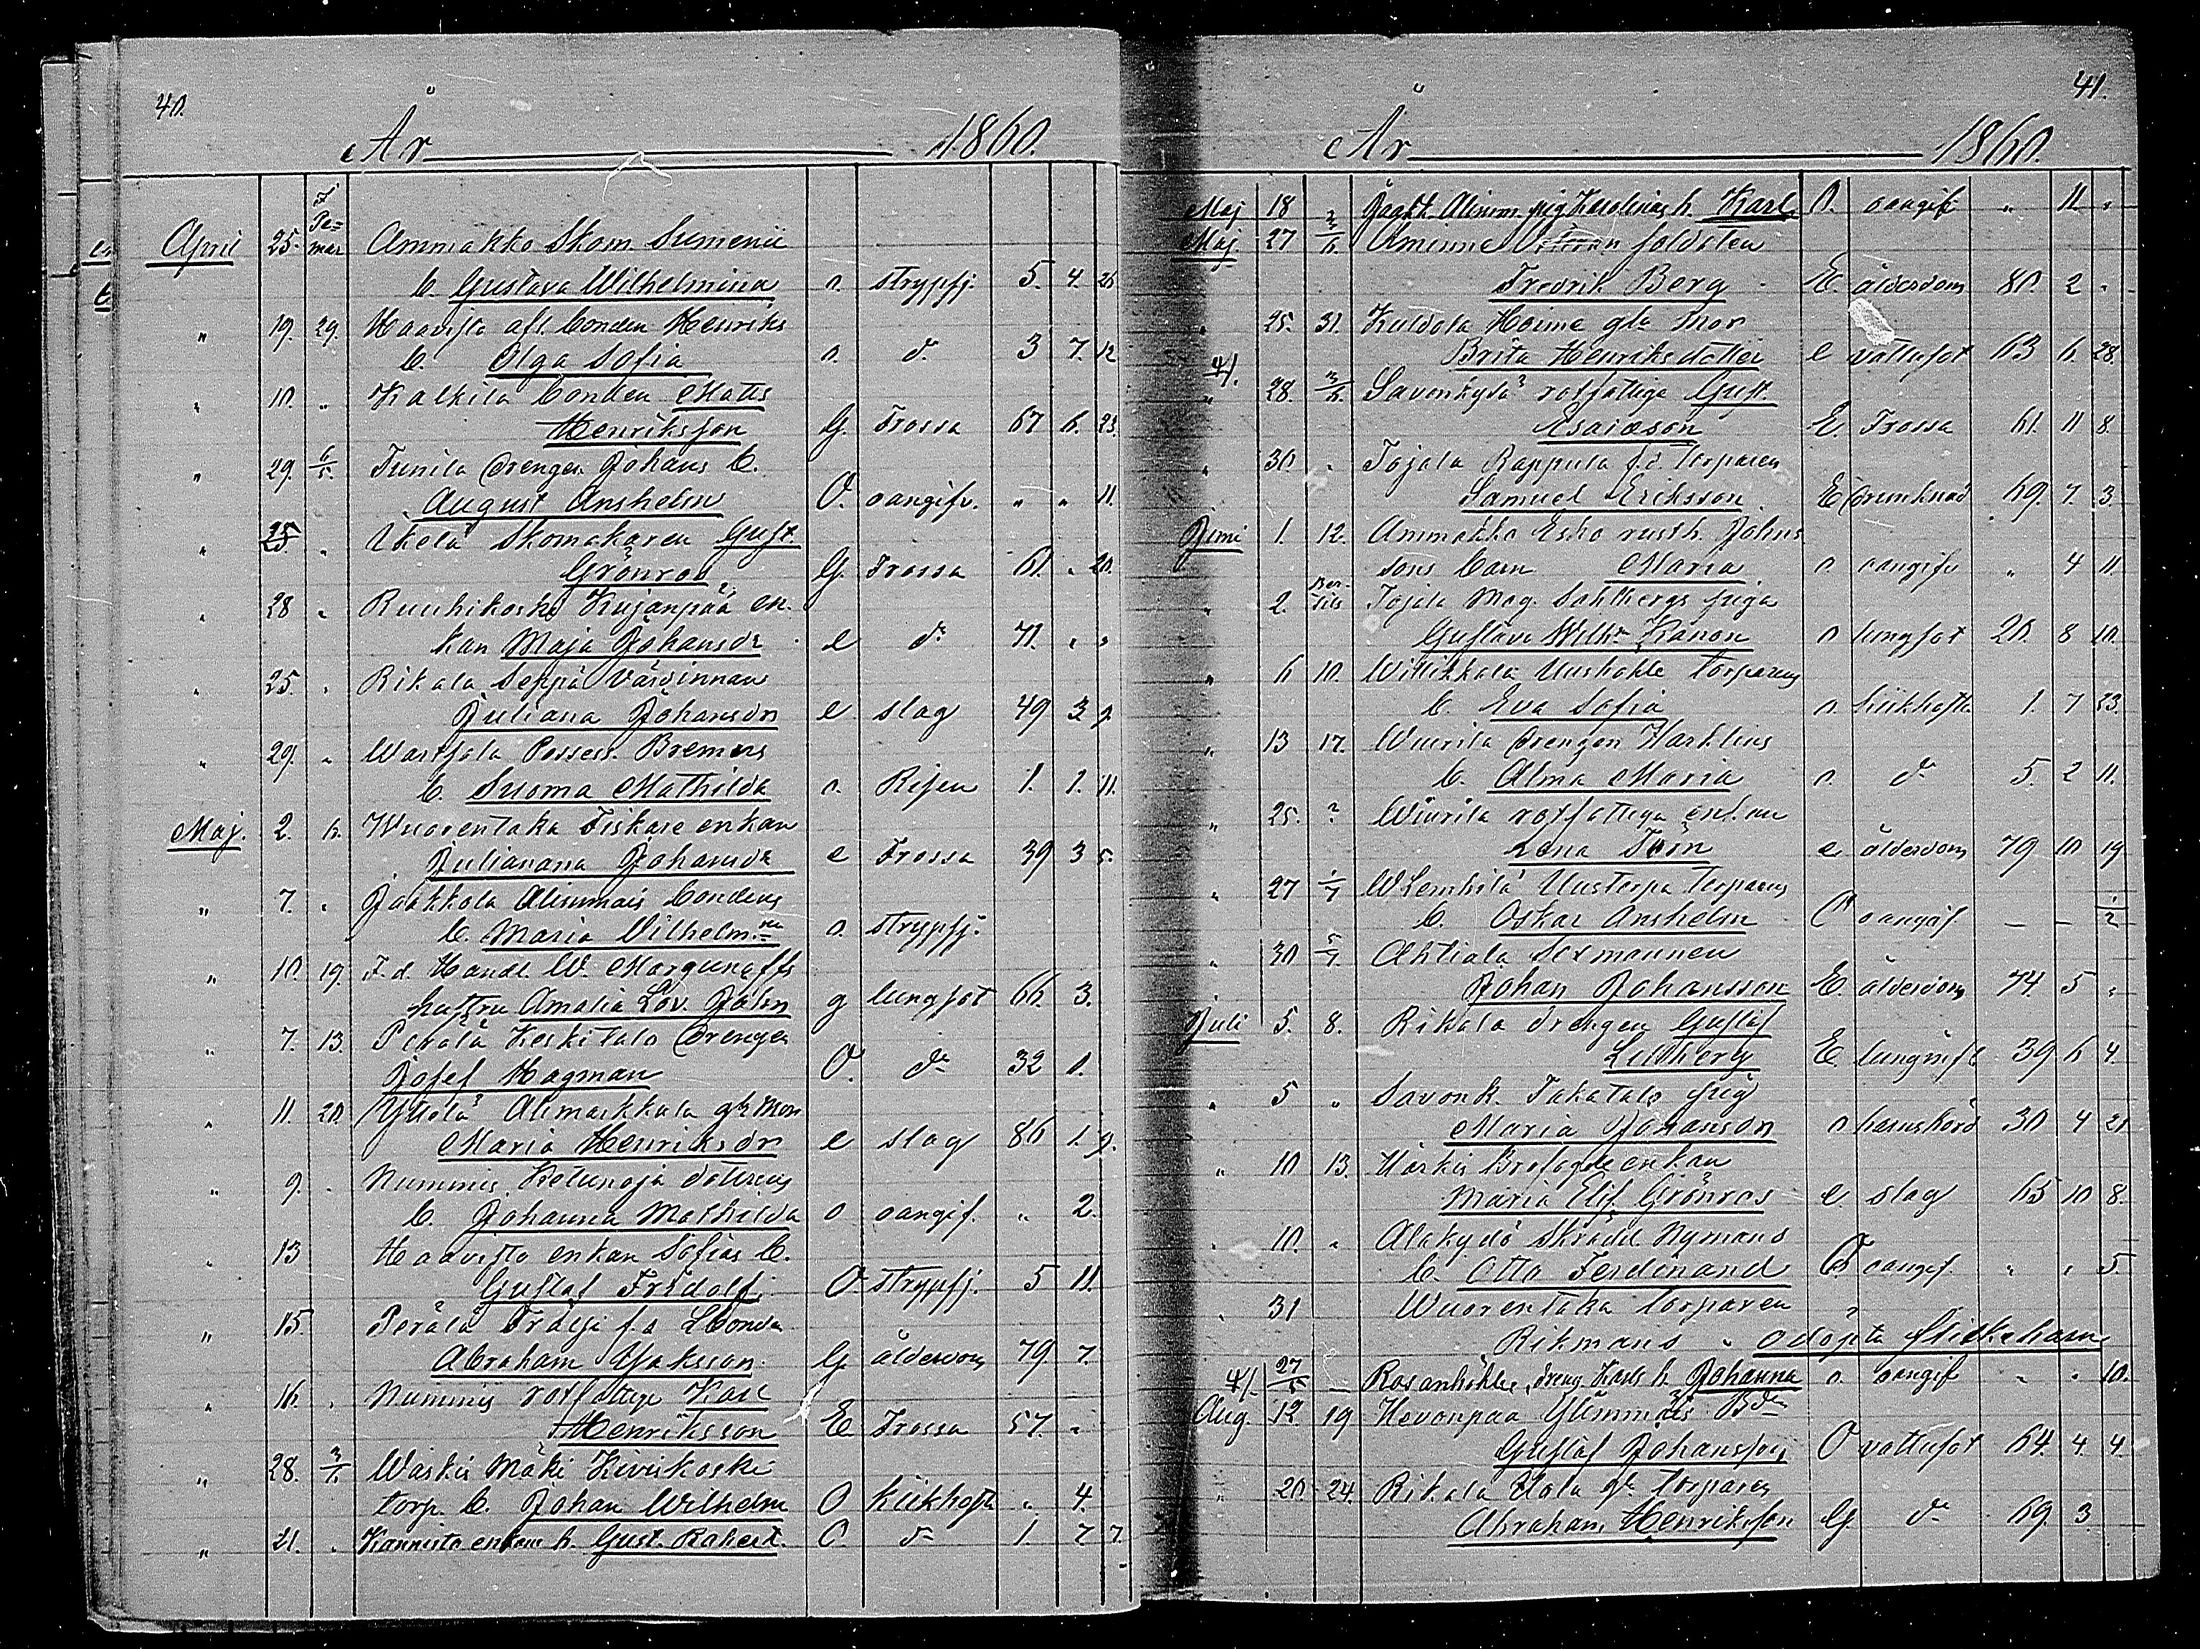 40.
År 1860.
April 25. f Pe=mar Ammakko Skom. Sumenii
b. Gustava Wilhelmina o. strypsj. 5. 4. 25
" 19. 29. Haavisto afl. bonden Henriks
b. Olga Sofia o. d:o 3 7. 12
" 10. " Kalkila bonden Matts
Henriksson G. Frossa 67 6. 23.
" 29. 6/5. Tunila drengen Johans b.
August Anshelm O. oangifv. " " 11.
" 25 " Ikelä Skomakaren Gust.
Grönros G. Frossa 61. " 20.
" 28 " Ruuhikoski Kujanpää en-
kan Maja Johansdr e d:o 71. " "
" 25. " Rikala Seppä värdinnan
Juliana Johansdr e slag 49 3 9.
" 29. " Wartsala Possess. Bremers
b. Suoma Mathilda o. Risen 1. 1. 11.
Maj. 2. 6. Wuorentaka Fiskare enkan
Julianana Johansdr e Frossa 39 3 5.
" 7. " Jaakkola Alimmais bondens
b. Maria Vilhelm.na o. strypsj.
" 10. 19. F. d. Handl. W. Margunoffs
hustru Amalia Lov. Jahn g lungsot 66. 3.
" 7. 13. Perälä Keskitalo drengen
Josef Hagman O. d:o 32 1.
" 11. 20. Ylluolä Alimarkkula gla Mor
Maria Henriksdr e slag 86 1. 9.
" 9. " Nummis Ketunoja dotterns
b. Johanna Mathilda o oangif. " 2.
" 13 Haavisto enkan Sofias b.
Gustaf Fridolf. O. strypsj. 5 11.
" 15. Peräla Fräsi f.d. Lbonde
Abraham Jaksson G ålderdom 79. 7.
" 16. " Nummis rotfattige Karl
Henriksson E Frossa 57. "
" 28. 3/6. Waskis Mäki Kiviskoski
torp. b. Johan Wilhelm O Kikhosta " 4.
" 21. " Kannisto enkans b. Gust. Robert. O. d:o 1. 7 7.
41.
År 1860.
Maj 18 Jaakk. Alimm. pig Karolinas b. Karl O. oangif " 11 "
Maj 27 3/6. Aminne Veteran soldaten
Fredrik Berg E ålderdom 80. 2 "
" 25. 31. Kuldola Heime gla Mor
Brita Henriksdotter e vattusot 63 6 28.
" 28. 3/6. Savonkylä rotfattige Gust.
Esaiason E. Frossa 61. 11 8.
" 30 " Tojala Rappula f.d. torparen
Samuel Eriksson E drunknad 69. 7. 3.
Juni 1. 12. Ammakko Esko rusth. Johns
sons barn Maria o oangifv " 4 11.
" 2. Tojala Mag. Sahlbergs piga
Gustava Wilh:a Kanon o lungsot 20. 8 10.
" 6 10. Willikkala Uushakka torparens
b. Eva Sofia o. kikhosta 1. 7 23.
" 13 17. Wiurila drengen Harklins
b. Alma Maria o. d:o 5. 2 11.
" 25. ? Wiurila rotfattiga enkan
Lena Törn e ålderdom 79 10 19
" 27 1/7 Wlemhilä Uustorpa torparens
b. Oskar Anshelm O oangif — — 1/2
" 30 5/7. Ahtiala Sexmannen
Johan Johansson E. ålderdom 74. 5 "
Juli 5. 8. Rikala drengen Gustaf
Lidberg E. lunginfl. 39 6 4.
" 5 " Savonk. Takatalo pig
Maria Johansdr o barnsbörd 30 4 21
" 10 13. Härkis enkan
Maria Elis. Grönros e. slag 65 10 8.
" 10. " Alakylö skrädd. Nymans
b. Otto Ferdinand O. oangif. " " 5.
" 31 Wuorentaka torparen
Rikmans " odöpta flickebarn
27/5 Rosenhohle, dreng Karls b. Johanna o. oangif - " 10.
Aug. 12. 19 Hevonpää Ylimmäis Bd:n
Gustaf Johansson O vattusot 64. 4. 4.
" 20. 24. Rikala Uola gla torparen
Abraham Henriksson G. d:o 69. 3.